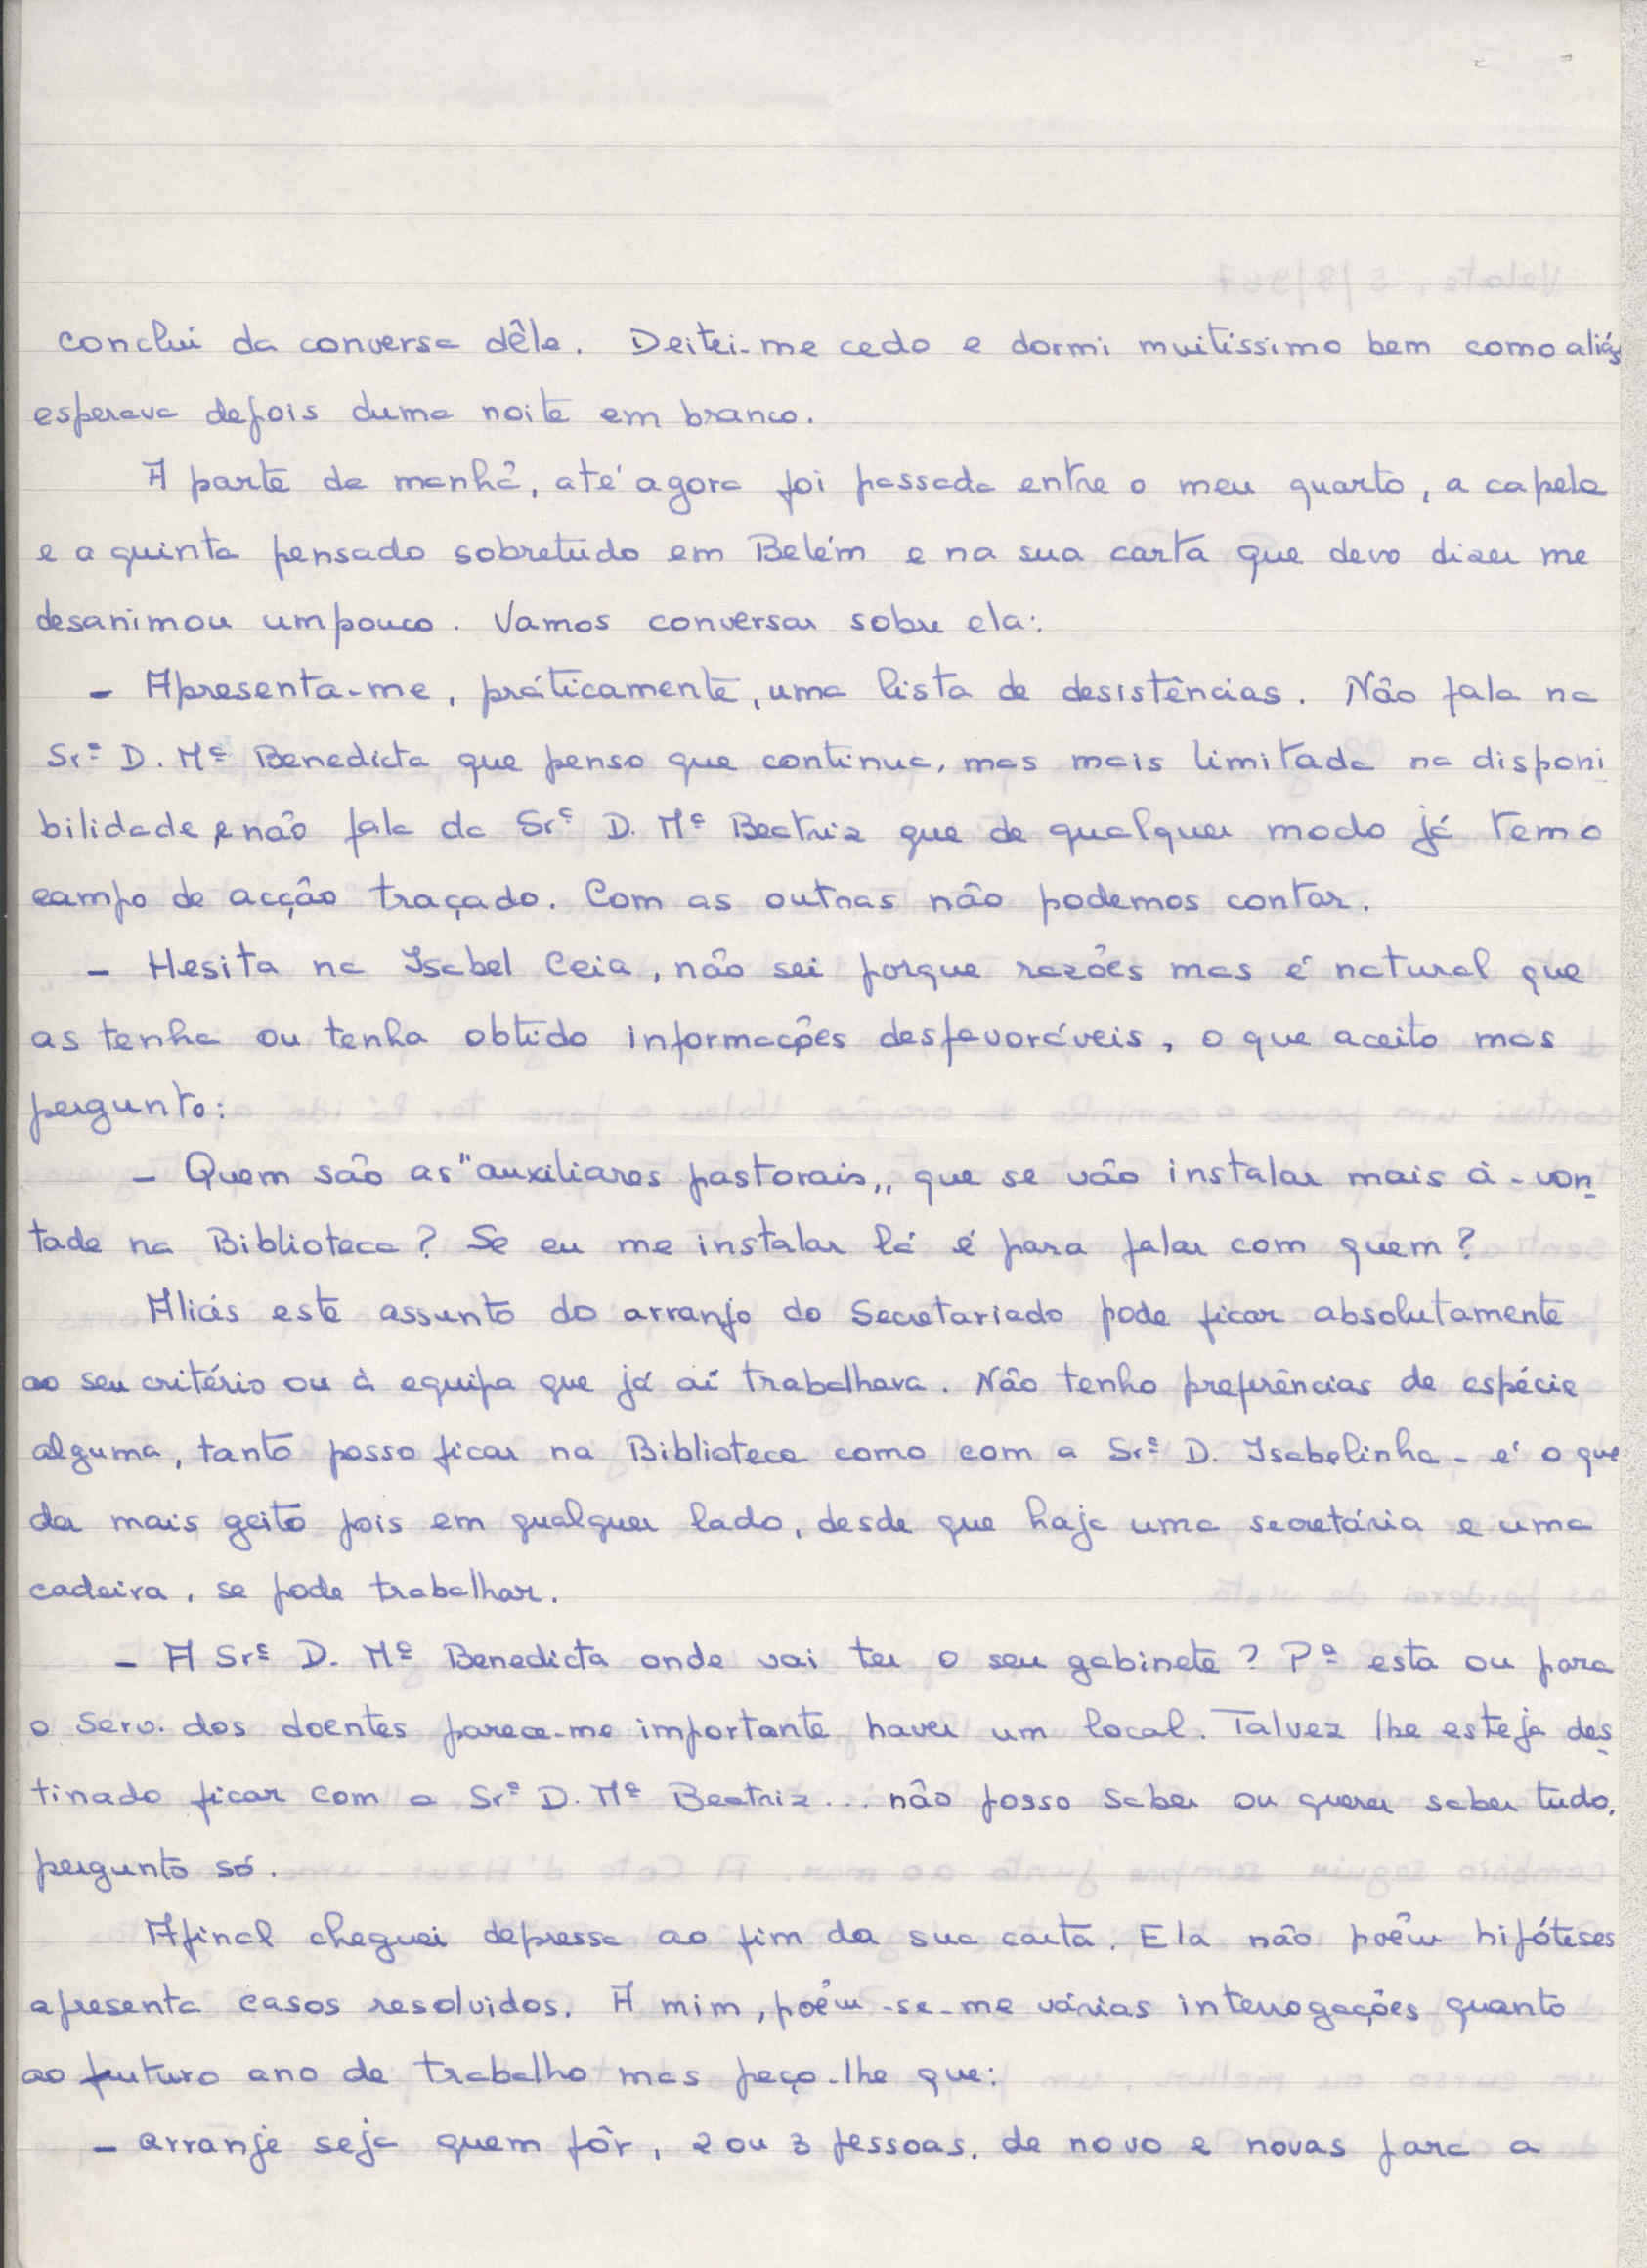 conclui da conversa dêle. Deitei-me cedo e dormi muitíssimo bem como aliás
esperava depois duma noite em branco.
A parte da manhã, até agora foi passada entre o meu quarto, a capela
e a quinta pensado sobretudo em Belém e na sua carta que devo dizer me
desanimou um pouco. Vamos conversar sobre ela:
- Apresenta-me, práticamente, uma lista de desistências. Não fala na
Srª D. Mª Benedicta que penso que continua, mas mais limitada na disponi
bilidade, e não fala da Srª D. Mª Beatriz que de qualquer modo já tem o
campo de acção traçado. Com as outras não podemos contar.
- Hesita na Isabel Ceia, não sei porque razões mas é natural que
as tenha ou tenha obtido informações desfavoráveis, o que aceito mas
pergunto:
- Quem são as "auxiliares pastorais,, que se vão instalar mais à-von
tade na Biblioteca? Se eu me instalar lá é para falar com quem?
Aliás este assunto do arranjo do Secretariado pode ficar absolutamente
ao seu critério ou à equipa que já aí trabalhava. Não tenho preferências de espécie
alguma, tanto posso ficar na Biblioteca como com a Srª D. Isabelinha - é o que
der mais geito pois em qualquer lado, desde que haja uma secretária e uma
cadeira, se pode trabalhar.
- A Srª D. Mª Benedicta onde vai ter o seu gabinete? Pª esta ou para
o Serv. dos doentes parece-me importante haver um local. Talvez lhe esteja des
tinado ficar com a Srª D. Mª Beatriz... não posso saber ou querer saber tudo,
pergunto só.
Afinal cheguei depressa ao fim da sua carta. Ela não põem hipóteses
apresenta casos resolvidos. A mim, põem-se-me várias interrogações quanto
ao futuro ano de trabalho mas peço-lhe que:
- arranje seja quem fôr, 2 ou 3 pessoas, de novo e novas para a